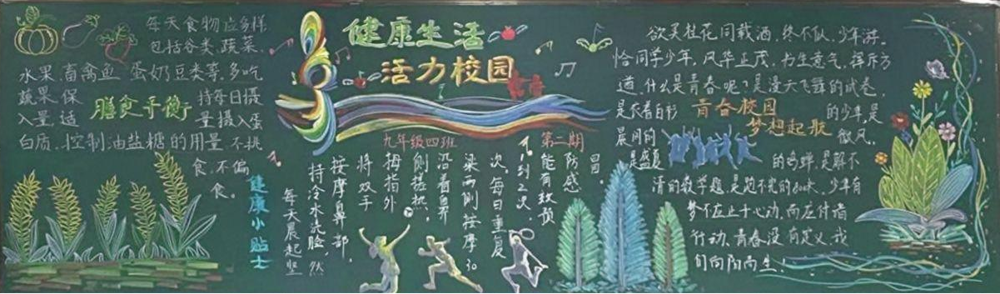 健康生活
活力校园
九年级四班
第二期
每天食物应多样
包括谷类、蔬菜、
水果、畜禽鱼、蛋奶豆类等,多吃
蔬果,保
膳食平衡
持每日摄
入量适
量摄入蛋
白质.控制油盐糖的用量.不挑
食,不偏
食。
健康小贴士
每天晨起坚
持冷水洗脸,然
按摩鼻部,
将双手
拇指外
侧搓热,
沿着鼻
梁两侧按摩30
次,每日重复
1到2次,
能有效预
防感
冒。
欲买桂花同载酒,终不似,少年游。
恰同学少年,风华正茂,书生意气,挥斥方
遒,什么是青春呢?是漫天飞舞的试卷,
青春校园
梦想起航
的少年,是
晨间的
微风,
是盛夏
的蝉,是解不
梦不在止于心动,而应付诸
行动,青春没有定义,我
们向阳而生!